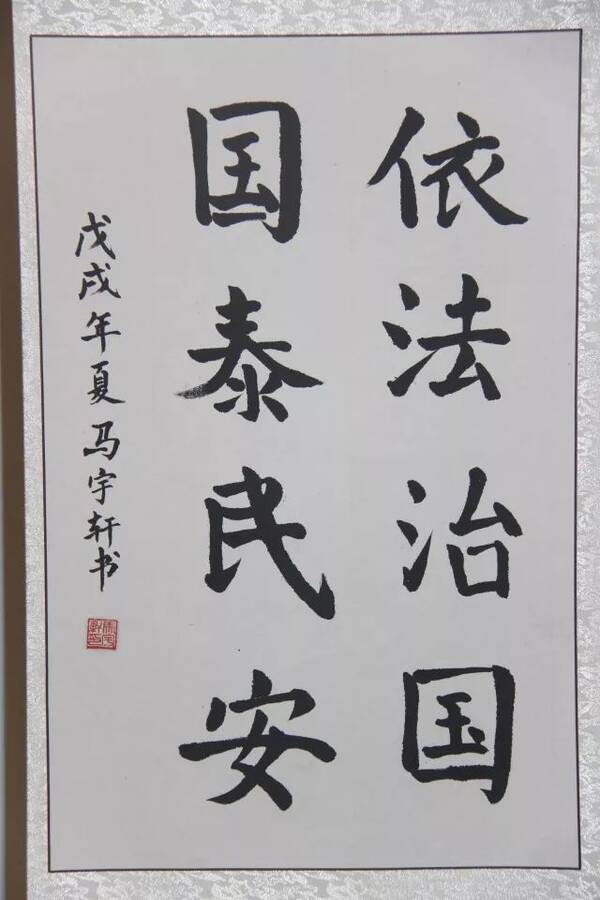 依法治国
国泰民安
戊戌年夏马宇轩书